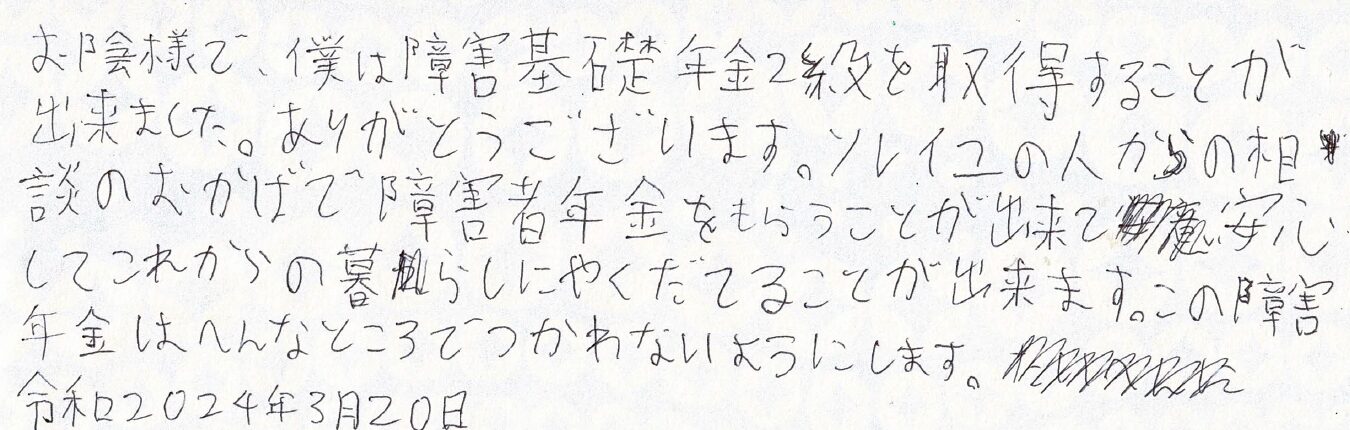 お陰様で、僕は障害基礎年金2級を取得することが
出来ました。ありがとうございます。ソレイユの人からの相
談のおかげで障害者年金をもらうことが出来て安心
してこれからの暮らしにやくだてることが出来ます。この障害
年金はへんなところでつかわないようにします。
令和2024年3月20日